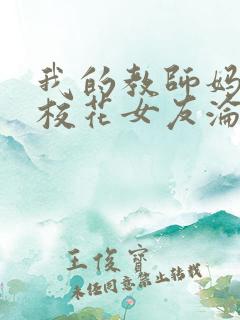 我的教師媽
校花女友淪
王俊寶
未经同意禁止转载